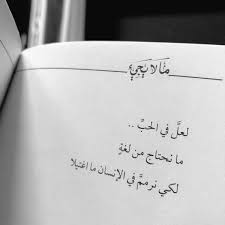 مَا لَا يَجِيءُ
لعلَّ في الحبِّ ..
ما نحتاج من لغةٍ
لكي نرممَّ في الإنسان ما اغتيلا